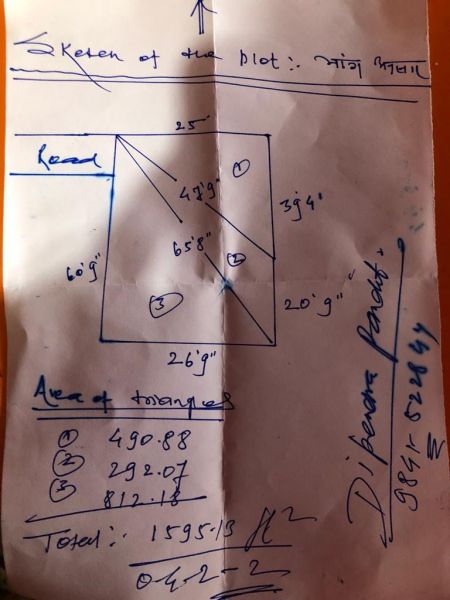 Sketch of the plot:- मांग अनुसार
25'
Road
①
47'9"
39'4"
65'8"
②
60'9"
③
20'9"
26'9"
Area of triangles
① 490.88
② 292.07
③ 812.18
Total:- 1595.13 ft2
0-4-2-2
Dipendra Pandit.
9841-522844